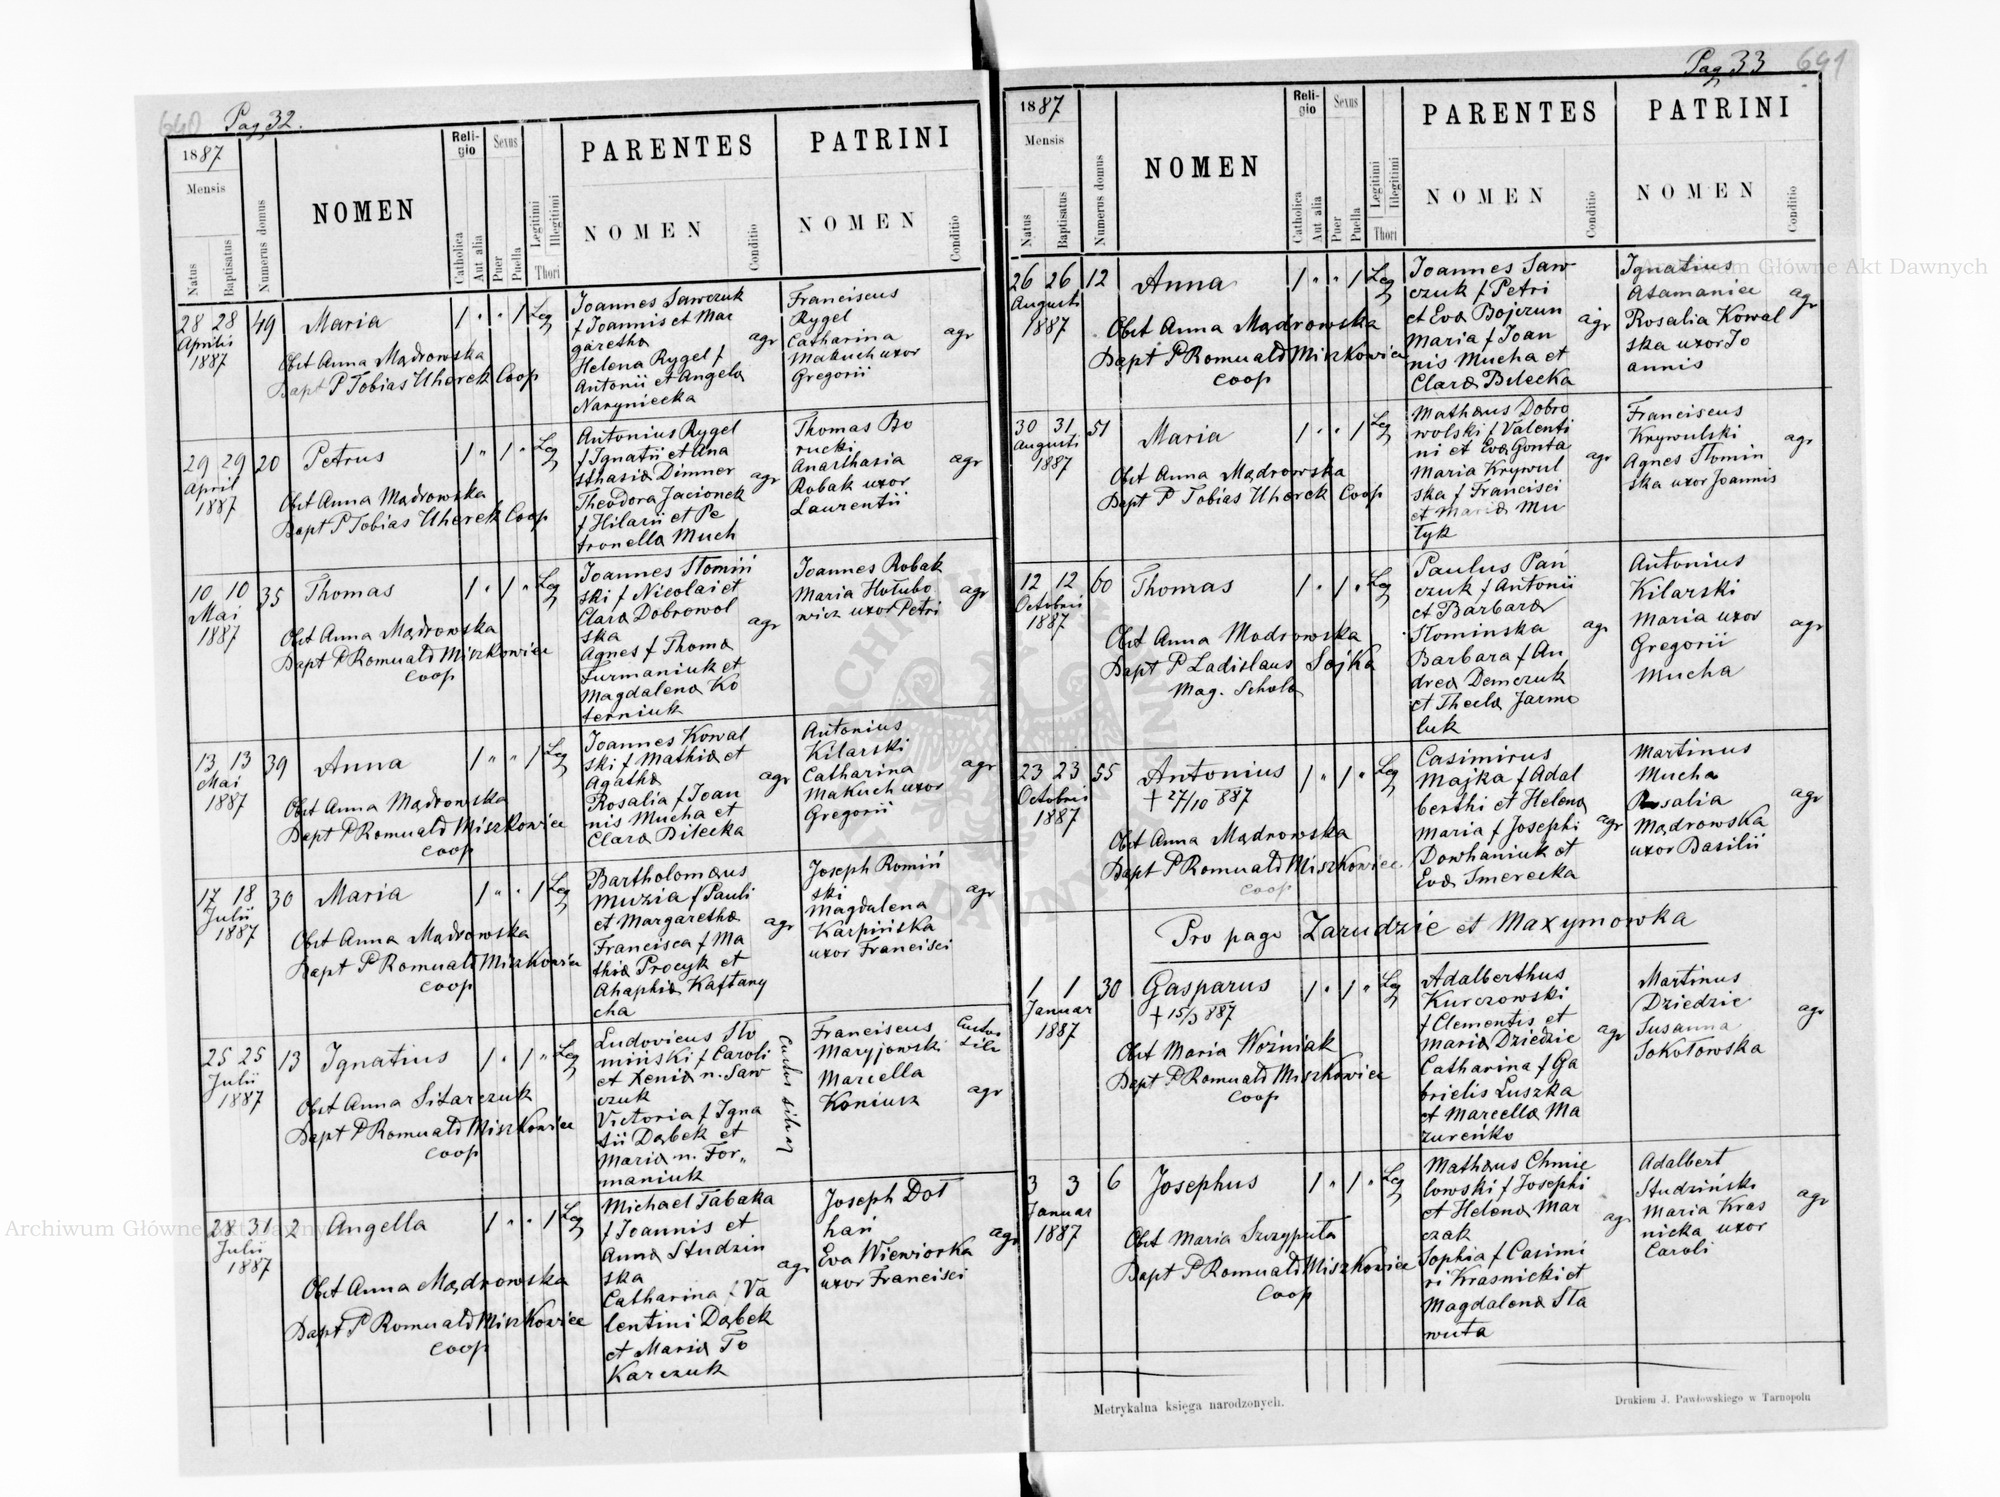 640 Pag 32.
1887
Mensis
Natus
Baptisatus
Numerus domus
NOMEN
Religio
Catholica
Aut alia
Sexus
Puer
Puella
Legitimi
Illegitimi
Thori
PARENTES
NOMEN
Conditio
PATRINI
NOMEN
Conditio
28 28 49 Maria 1 " " 1 Leg
Aprilis
1887
Obst Anna Mądrowska
Bapt P Tobias Uherek Coop
Joannes Sawczuk
f Joannis et Mar
garetha
Helena Rygel f
Antonii et Angela
Naryniecka
agr
Franciscus
Rygel
Catharina
Makuch uxor
Gregorii
agr
29 29 20 Petrus 1 " 1 " Leg
April
1887
Obst Anna Mądrowska
Bapt P Tobias Uherek Coop
Antonius Rygel
f Ignatii et Ana
sthasia Dimner
Theodora Jacionek
f Hilarii et Pe
tronella Much
agr
Thomas Bo
rucki
Anasthasia
Robak uxor
Laurentii
agr
10 10 35 Thomas 1 " 1 " Leg
Mai
1887
Obst Anna Mądrowska
Bapt P Romuald Miszkowicz
Coop
Joannes Słomiń
ski f Nicolai et
Clara Dobrowol
ska
Agnes f Thoma
Furmaniuk et
Magdalena Ko
terniuk
agr
Joannes Robak
Maria Hołubo
wicz uxor Petri
agr
13 13 39 Anna 1 " " 1 Leg
Mai
1887
Obst Anna Mądrowska
Bapt P Romuald Miszkowicz
Coop
Joannes Kowal
ski f Mathia et
Agatha
Rosalia f Joan
nis Mucha et
Clara Bilecka
agr
Antonius
Kilarski
Catharina
Makuch uxor
Gregorii
agr
17 18 30 Maria 1 " " 1 Leg
Julii
1887
Obst Anna Mądrowska
Bapt P Romuald Miszkowicz
Coop
Bartholomæus
Muzia f Pauli
et Margaretha
Francisca f Ma
thia Procyk et
Ahaphia Kaftany
cha
agr
Joseph Romiń
ski
Magdalena
Karpińska
uxor Francisci
agr
25 25 13 Ignatius 1 " 1 " Leg
Julii
1887
Obst Anna Sitarczuk
Bapt P Romuald Miszkowicz
Coop
Ludovicus Sło
miński f Caroli
et Xenia n. Saw
czuk
Victoria f Igna
tii Dąbek et
Maria n. For„
maniuk
Custos silvar
Franciscus
Maryjowski
Marcella
Koniusz
Custos
silv
agr
28 31 2 Angella 1 " " 1 Leg
Julii
1887
Obst Anna Mądrowska
Bapt P Romuald Miszkowicz
Coop
Michael Tabaka
f Joannis et
Anna Studzin
ska
Catharina f Va
lentini Dąbek
et Maria To
Karczuk
agr
Joseph Doł
hań
Eva Wiewiorka
uxor Francisci
agr
Pag 33 641
1887
Mensis
Natus
Baptisatus
Numerus domus
NOMEN
Religio
Catholica
Aut alia
Sexus
Puer
Puella
Legitimi
Illegitimi
Thori
PARENTES
NOMEN
Conditio
PATRINI
NOMEN
Conditio
26 26 12 Anna 1 " " 1 Leg
Augusti
1887
Obst Anna Mądrowska
Bapt P Romuald Miszkowicz
Coop
Joannes Saw
czuk f Petri
et Eva Bojczun
Maria f Joan
nis Mucha et
Clara Bilecka
agr
Ignatius
Atamaniec
Rosalia Kowal
ska uxor Jo
annis
agr
30 31 51 Maria 1 " " 1 Leg
Augusti
1887
Obst Anna Mądrowska
Bapt P Tobias Uherek Coop
Mathæus Dobro
wolski f Valenti
ni et Eva Gonta
Maria Krywul
ska f Francisci
et Maria Mu
łyk
agr
Franciscus
Krywulski
Agnes Słomin
ska uxor Joannis
agr
12 12 60 Thomas 1 " 1 " Leg
Octobris
1887
Obst Anna Modrowska
Bapt P Ladislaus Sojka
Mag. Schola
Paulus Pań
czuk f Antonii
et Barbara
Słominska
Barbara f An
drea Demczuk
et Thecla Jarmo
luk
agr
Antonius
Kilarski
Maria uxor
Gregorii
Mucha
agr
23 23 55 Antonius 1 " 1 " Leg
Octobris
1887
+ 27/10 887
Obst Anna Mądrowska
Bapt P Romuald Miszkowicz
Coop
Casimirus
Majka f Adal
berthi et Helena
Maria f Josephi
Dowhaniuk et
Eva Smerecka
agr
Martinus
Mucha
Rosalia
Mądrowska
uxor Basilii
agr
Pro pago Zarudzie et Maxymowka
1 1 30 Gasparus 1 " 1 " Leg
Januar
1887
+ 15/3 887
Obst Maria Woźniak
Bapt P Romuald Miszkowicz
Coop
Adalberthus
Kurczowski
f Clementis et
Maria Dziedzic
Catharina f Ga
brielis Luszka
et Marcella Ma
zureńko
agr
Martinus
Dziedzic
Susanna
Sokołowska
agr
3 3 6 Josephus 1 " 1 " Leg
Januar
1887
Obst Maria Szczyputa
Bapt P Romuald Miszkowicz
Coop
Mathæus Chmie
lowski f Josephi
et Helena Mar
czak
Sophia f Casimi
ri Krasnicki et
Magdalena Sta
wuta
agr
Adalbert
Studziński
Maria Kras
nicka uxor
Caroli
agr
Metrykalna księga narodzonych.
Drukiem J. Pawłowskiego w Tarnopolu
Archiwum Główne Akt Dawnych
Archiwum Główne Akt Dawnych